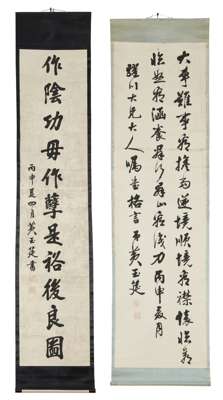 大事難事看擔當逆境順境看襟懷臨喜
臨怒看涵養群行群止看識力丙申夏月
大兄大人囑書格言弟黃玉
作陰功毋作孽是裕後良圖
丙申夏四月黃玉書